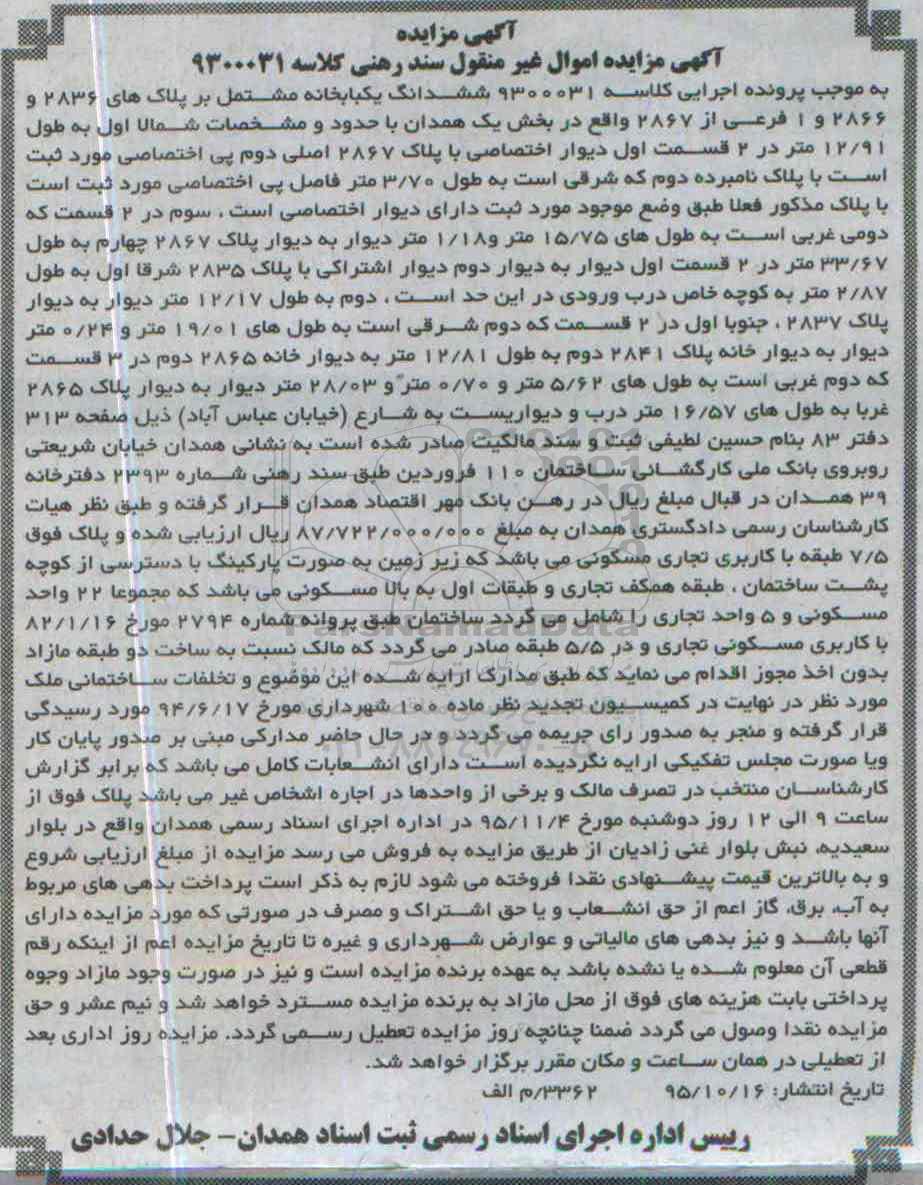 آگهی مزایده
آگهی مزایده اموال غیر منقول سند رهنی کلاسه ۹۳۰۰۰۳۱
به موجب پرونده اجرایی کلاسه ۹۳۰۰۰۳۱ ششدانگ یکبابخانه مشتمل بر پلاک های ۲۸۳۶ و
۲۸۶۶ و ۱ فرعی از ۲۸۶۷ واقع در بخش یک همدان با حدود و مشخصات شمالا اول به طول
۱۲/۹۱ متر در ۲ قسمت اول دیوار اختصاصی با پلاک ۲۸۶۷ اصلی دوم پی اختصاصی مورد ثبت
است با پلاک نامبرده دوم که شرقی است به طول ۳/۷۰ متر فاصل پی اختصاصی مورد ثبت است
با پلاک مذکور فعلا طبق وضع موجود مورد ثبت دارای دیوار اختصاصی است ، سوم در ۲ قسمت که
دومی غربی است به طول های ۱۵/۷۵ متر و۱/۱۸ متر دیوار به دیوار پلاک ۲۸۶۷ چهارم به طول
۳۳/۶۷ متر در ۲ قسمت اول دیوار به دیوار دوم دیوار اشتراکی با پلاک ۲۸۳۵ شرقا اول به طول
۲/۸۷ متر به کوچه خاص درب ورودی در این حد است ، دوم به طول ۱۲/۱۷ متر دیوار به دیوار
پلاک ۲۸۳۷ ، جنوبا اول در ۲ قسمت که دوم شرقی است به طول های ۱۹/۰۱ متر و ۰/۲۴ متر
دیوار به دیوار خانه پلاک ۲۸۴۱ دوم به طول ۱۲/۸۱ متر به دیوار خانه ۲۸۶۵ دوم در ۳ قسمت
که دوم غربی است به طول های ۵/۶۲ متر و ۰/۷۰ متر و ۲۸/۰۳ متر دیوار به دیوار پلاک ۲۸۶۵
غربا به طول های ۱۶/۵۷ متر درب و دیواریست به شارع (خیابان عباس آباد) ذیل صفحه ۳۱۳
دفتر ۸۳ بنام حسین لطیفی ثبت و سند مالکیت صادر شده است به نشانی همدان خیابان شریعتی
روبروی بانک ملی کارگشائی ساختمان ۱۱۰ فروردین طبق سند رهنی شماره ۲۳۹۳ دفترخانه
۳۹ همدان در قبال مبلغ ریال در رهن بانک مهر اقتصاد همدان قرار گرفته و طبق نظر هیات
کارشناسان رسمی دادگستری همدان به مبلغ ۸۷/۷۲۲/۰۰۰/۰۰۰ ریال ارزیابی شده و پلاک فوق
۷/۵ طبقه با کاربری تجاری مسکونی می باشد که زیر زمین به صورت پارکینگ با دسترسی از کوچه
پشت ساختمان ، طبقه همکف تجاری و طبقات اول به بالا مسکونی می باشد که مجموعا ۲۲ واحد
مسکونی و ۵ واحد تجاری را شامل می گردد ساختمان طبق پروانه شماره ۲۷۹۴ مورخ ۸۲/۱/۱۶
با کاربری مسکونی تجاری و در ۵/۵ طبقه صادر می گردد که مالک نسبت به ساخت دو طبقه مازاد
بدون اخذ مجوز اقدام می نماید که طبق مدارک ارایه شده این موضوع و تخلفات ساختمانی ملک
مورد نظر در نهایت در کمیسیون تجدید نظر ماده ۱۰۰ شهرداری مورخ ۹۴/۶/۱۷ مورد رسیدگی
قرار گرفته و منجر به صدور رای جریمه می گردد و در حال حاضر مدارکی مبنی بر صدور پایان کار
ویا صورت مجلس تفکیکی ارایه نگردیده است دارای انشعابات کامل می باشد که برابر گزارش
کارشناسان منتخب در تصرف مالک و برخی از واحدها در اجاره اشخاص غیر می باشد پلاک فوق از
ساعت ۹ الی ۱۲ روز دوشنبه مورخ ۹۵/۱۱/۴ در اداره اجرای اسناد رسمی همدان واقع در بلوار
سعیدیه، نبش بلوار غنی زادیان از طریق مزایده به فروش می رسد مزایده از مبلغ ارزیابی شروع
و به بالاترین قیمت پیشنهادی نقدا فروخته می شود لازم به ذکر است پرداخت بدهی های مربوط
به آب، برق، گاز اعم از حق انشعاب و یا حق اشتراک و مصرف در صورتی که مورد مزایده دارای
آنها باشد و نیز بدهی های مالیاتی و عوارض شهرداری و غیره تا تاریخ مزایده اعم از اینکه رقم
قطعی آن معلوم شده یا نشده باشد به عهده برنده مزایده است و نیز در صورت وجود مازاد وجوه
پرداختی بابت هزینه های فوق از محل مازاد به برنده مزایده مسترد خواهد شد و نیم عشر و حق
مزایده نقدا وصول می گردد ضمنا چنانچه روز مزایده تعطیل رسمی گردد، مزایده روز اداری بعد
از تعطیلی در همان ساعت و مکان مقرر برگزار خواهد شد.
تاریخ انتشار: ۹۵/۱۰/۱۶ ۳۳۶۲/م الف
رییس اداره اجرای اسناد رسمی ثبت اسناد همدان- جلال حدادی
ParsNamadData